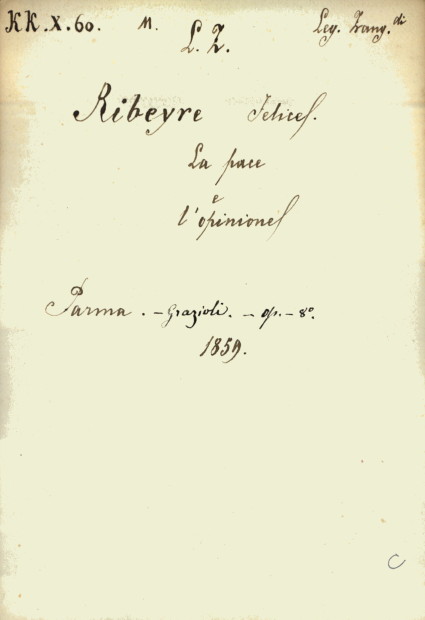 KK.X.60. M. Leg. Zang.di
L. Z.
Ribeyre Felice.
La pace
e
l'opinione
Parma. - Grazioli. - op. - 8°.
1859.
C